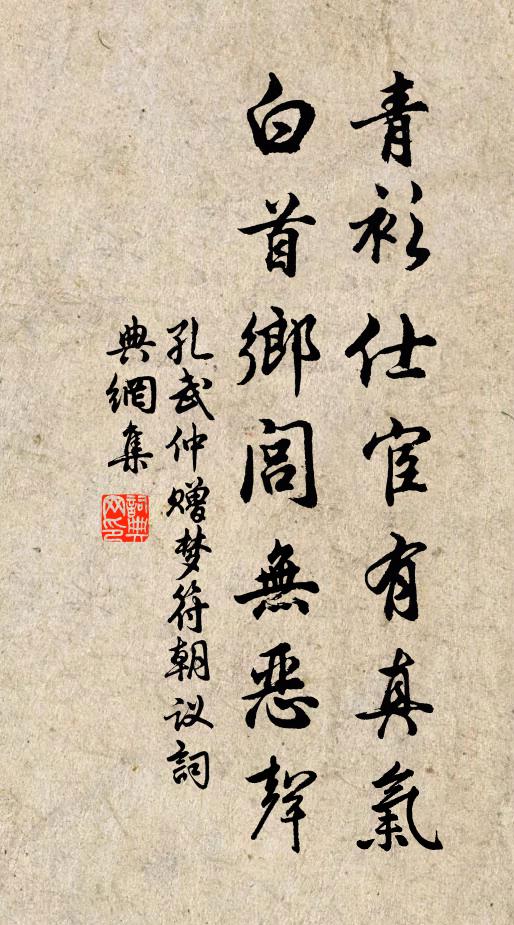 青衫仕宦有真氣
白首鄉閭無惡聲
孔武仲赠梦符朝议詞
典網集
詞典网印